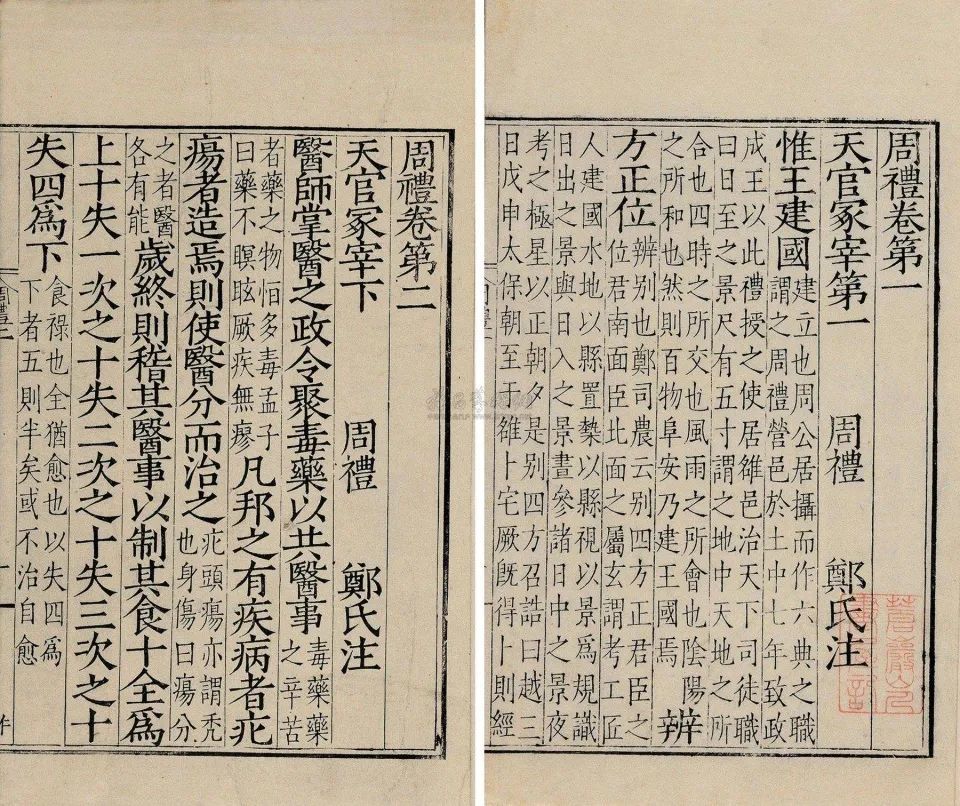 周禮卷第一
天官冢宰第一 周禮 鄭氏注
惟王建國 建立也周公居攝而作六典之職
謂之周禮營邑於土中七年致政
成王以此禮授之使居雒邑治天下司徒職
曰日至之景尺有五寸謂之地中天地之所
合也四時之所交也風雨之所會也陰陽
之所和也然則百物阜安乃建王國焉 辨
方正位 辨别也鄭司農云别四方正君臣之
位君南面臣北面之屬玄謂考工匠
人建國水地以縣置槷以縣視以景爲規識
日出之景與日入之景晝參諸日中之景夜
考之極星以正朝夕是别四方召誥曰越三
日戊申太保朝至于雒卜宅厥旣得卜則經
周禮卷第二
天官冢宰下 周禮 鄭氏注
醫師掌醫之政令聚毒藥以共醫事 毒藥藥
之辛苦
者藥之物恒多毒孟子
曰藥不瞑眩厥疾無瘳 凡邦之有疾病者疕
瘍者造焉則使醫分而治之 疕頭瘍亦謂禿
也身傷曰瘍分
之者醫
各有能 歲終則稽其醫事以制其食十全爲
上十失一次之十失二次之十失三次之十
失四爲下 食祿也全猶愈也以失四爲
下者五則半矣或不治自愈